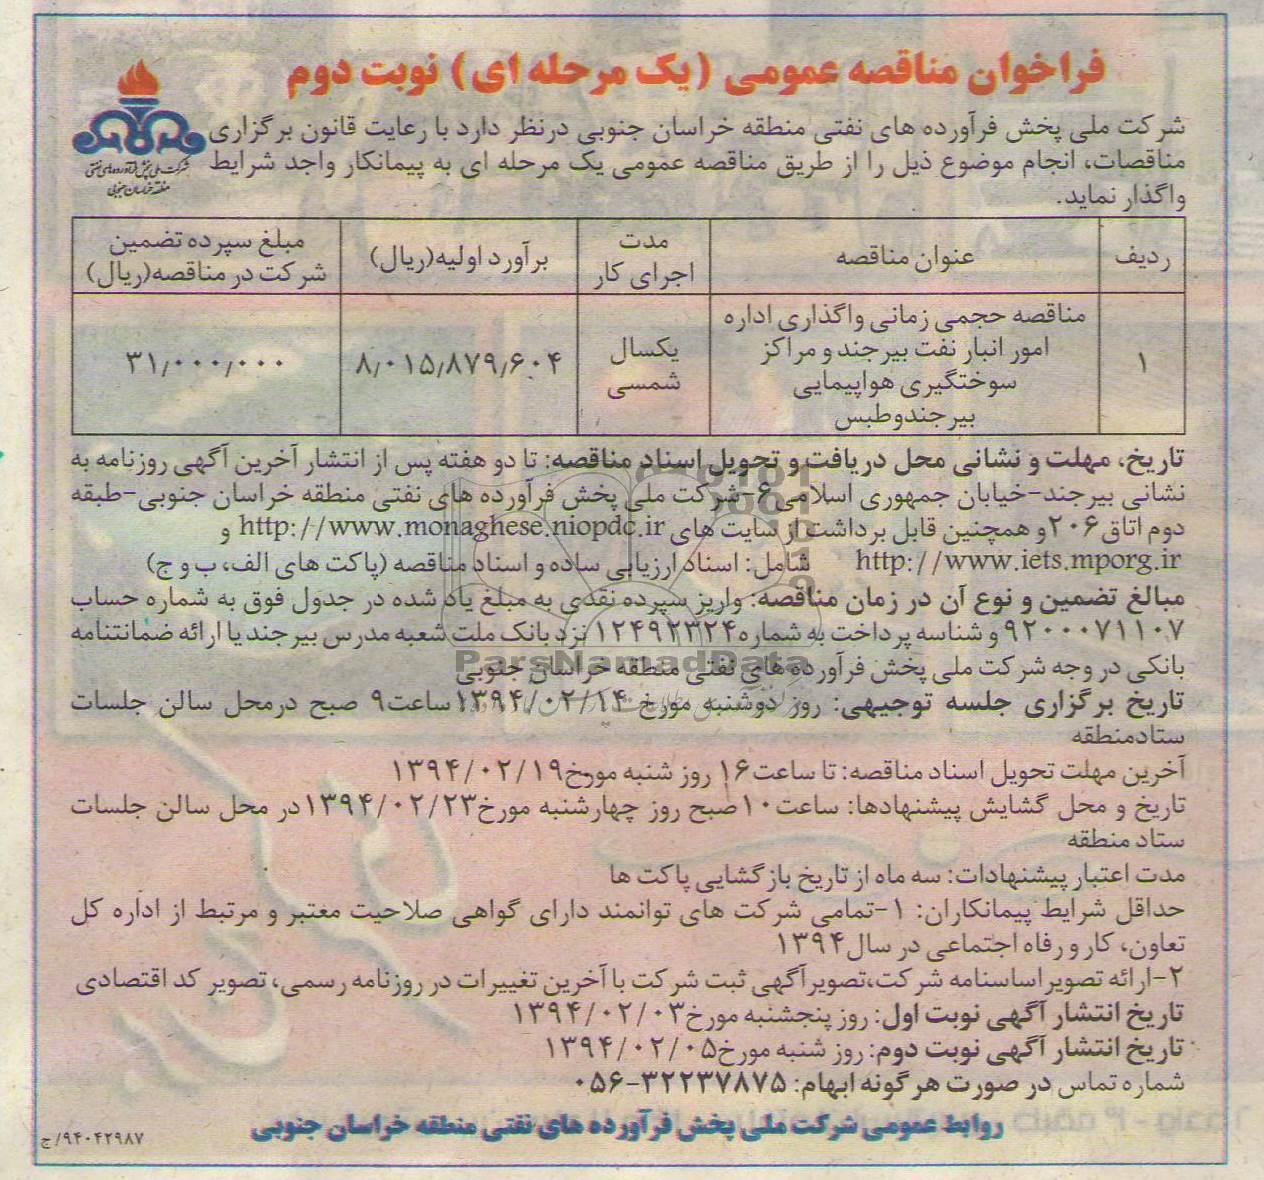 فراخوان مناقصه عمومی (یک مرحله ای) نوبت دوم
شرکت ملی پخش فرآورده های نفتی منطقه خراسان جنوبی درنظر دارد با رعایت قانون برگزاری
مناقصات، انجام موضوع ذیل را از طریق مناقصه عمومی یک مرحله ای به پیمانکار واجد شرایط
واگذار نماید.
شرکت ملی پخش فرآورده‌های نفتی
منطقه خراسان جنوبی
ردیف عنوان مناقصه مدت اجرای کار برآورد اولیه(ریال) مبلغ سپرده تضمین شرکت در مناقصه(ریال)
مناقصه حجمی زمانی واگذاری اداره
امور انبار نفت بیرجند و مراکز
سوختگیری هواپیمایی
بیرجندوطبس
۱ یکسال شمسی ۸٫۰۱۵٫۸۷۹٫۶۰۴ ۳۱٫۰۰۰٫۰۰۰
تاریخ، مهلت و نشانی محل دریافت و تحویل اسناد مناقصه: تا دو هفته پس از انتشار آخرین آگهی روزنامه به
نشانی بیرجند-خیابان جمهوری اسلامی ۶-شرکت ملی پخش فرآورده های نفتی منطقه خراسان جنوبی-طبقه
دوم اتاق ۲۰۶ و همچنین قابل برداشت از سایت های http://www.monaghese.niopdc.ir و
http://www.iets.mporg.ir شامل: اسناد ارزیابی ساده و اسناد مناقصه (پاکت های الف، ب و ج)
مبالغ تضمین و نوع آن در زمان مناقصه: واریز سپرده نقدی به مبلغ یاد شده در جدول فوق به شماره حساب
۹۲۰۰۰۷۱۱۰۷ و شناسه پرداخت به شماره ۱۲۴۹۲۳۲۴ نزد بانک ملت شعبه مدرس بیرجند یا ارائه ضمانتنامه
بانکی در وجه شرکت ملی پخش فرآورده های نفتی منطقه خراسان جنوبی
ParsNamadData
تاریخ برگزاری جلسه توجیهی: روز دوشنبه مورخ ۱۳۹۴/۰۲/۱۴ ساعت ۹ صبح درمحل سالن جلسات
ستادمنطقه
آخرین مهلت تحویل اسناد مناقصه: تا ساعت ۱۶ روز شنبه مورخ ۱۳۹۴/۰۲/۱۹
تاریخ و محل گشایش پیشنهادها: ساعت ۱۰ صبح روز چهارشنبه مورخ ۱۳۹۴/۰۲/۲۳ در محل سالن جلسات
ستاد منطقه
مدت اعتبار پیشنهادات: سه ماه از تاریخ بازگشایی پاکت ها
حداقل شرایط پیمانکاران: ۱-تمامی شرکت های توانمند دارای گواهی صلاحیت معتبر و مرتبط از اداره کل
تعاون، کار و رفاه اجتماعی در سال ۱۳۹۴
۲-ارائه تصویر اساسنامه شرکت، تصویرآگهی ثبت شرکت با آخرین تغییرات در روزنامه رسمی، تصویر کد اقتصادی
تاریخ انتشار آگهی نوبت اول: روز پنجشنبه مورخ ۱۳۹۴/۰۲/۰۳
تاریخ انتشار آگهی نوبت دوم: روز شنبه مورخ ۱۳۹۴/۰۲/۰۵
شماره تماس در صورت هرگونه ابهام: ۳۲۲۳۷۸۷۵-۰۵۶
روابط عمومی شرکت ملی پخش فرآورده های نفتی منطقه خراسان جنوبی
۹۴۰۴۲۹۸۷/ج